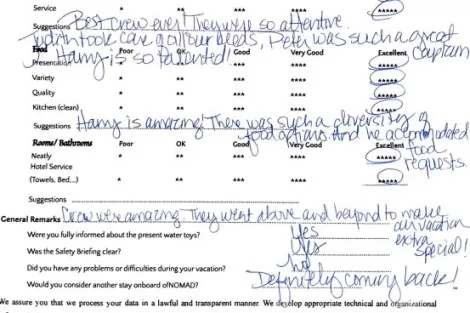 Service * ** *** **** *****
Suggestions Best crew ever! They were so attentive.
Judith took care of all our needs, Peter was such a great captain
Harry is so talented!
Food Poor OK Good Very Good Excellent
Presentation * ** *** **** *****
Variety * ** *** **** *****
Quality * ** *** **** *****
Kitchen (clean) * ** *** **** *****
Suggestions Harry is amazing! There was such a diversity of
food options. And he accommodated
food requests.
Rooms/ Bathrooms Poor OK Good Very Good Excellent
Neatly * ** *** **** *****
Hotel Service
(Towels, Bed...) * ** *** **** *****
Suggestions
General Remarks Crew were amazing. They went above and beyond to make
our vacation
extra
special!
Were you fully informed about the present water toys? Yes
Was the Safety Briefing clear? Yes
Did you have any problems or difficulties during your vacation? No
Would you consider another stay onboard ofNOMAD? Definitely coming back!
We assure you that we process your data in a lawful and transparent manner. We develop appropriate technical and organizational